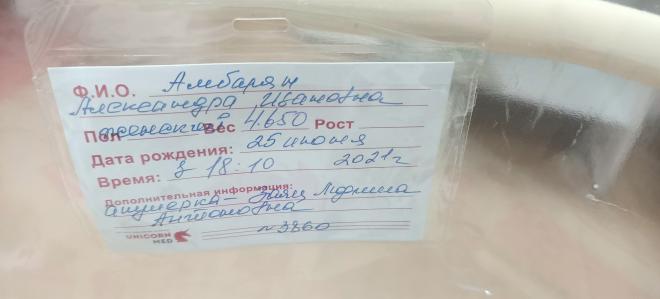 Ф.И.О. Амбарян
Александра Ивановна
Пол женский Вес 4650 Рост
Дата рождения: 25 июня
Время: в 18:10 2021г
Дополнительная информация:
акушерка - Заяц Людмила
Антоновна
UNICORN
MED
№3860